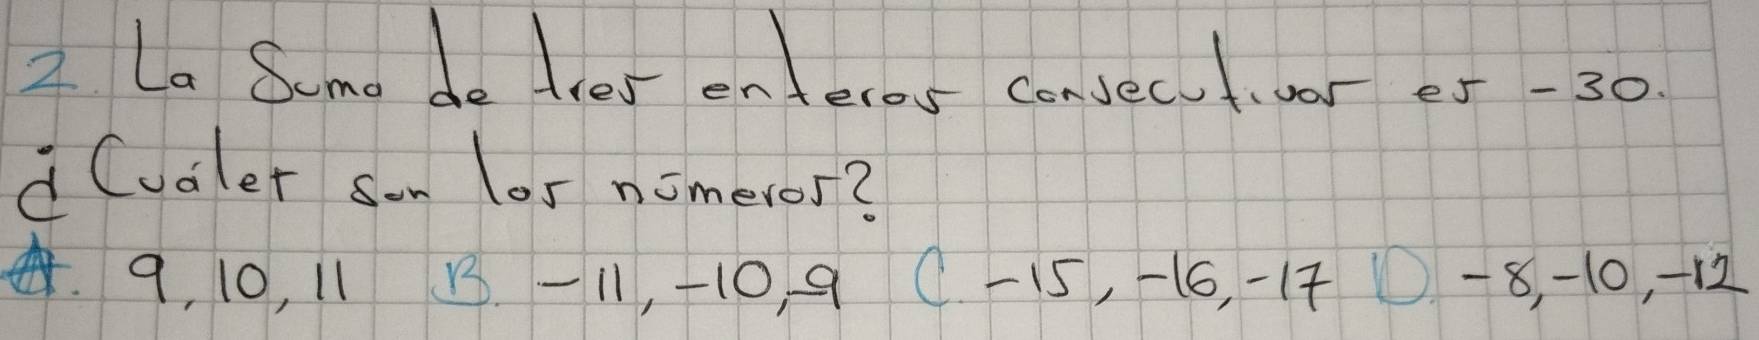 2. La Suma de tres enteros consecutivos es -30.
¿Cuáles son los números?
A. 9, 10, 11 B. -11, -10, -9 C. -15, -16, -17 D. -8, -10, -12